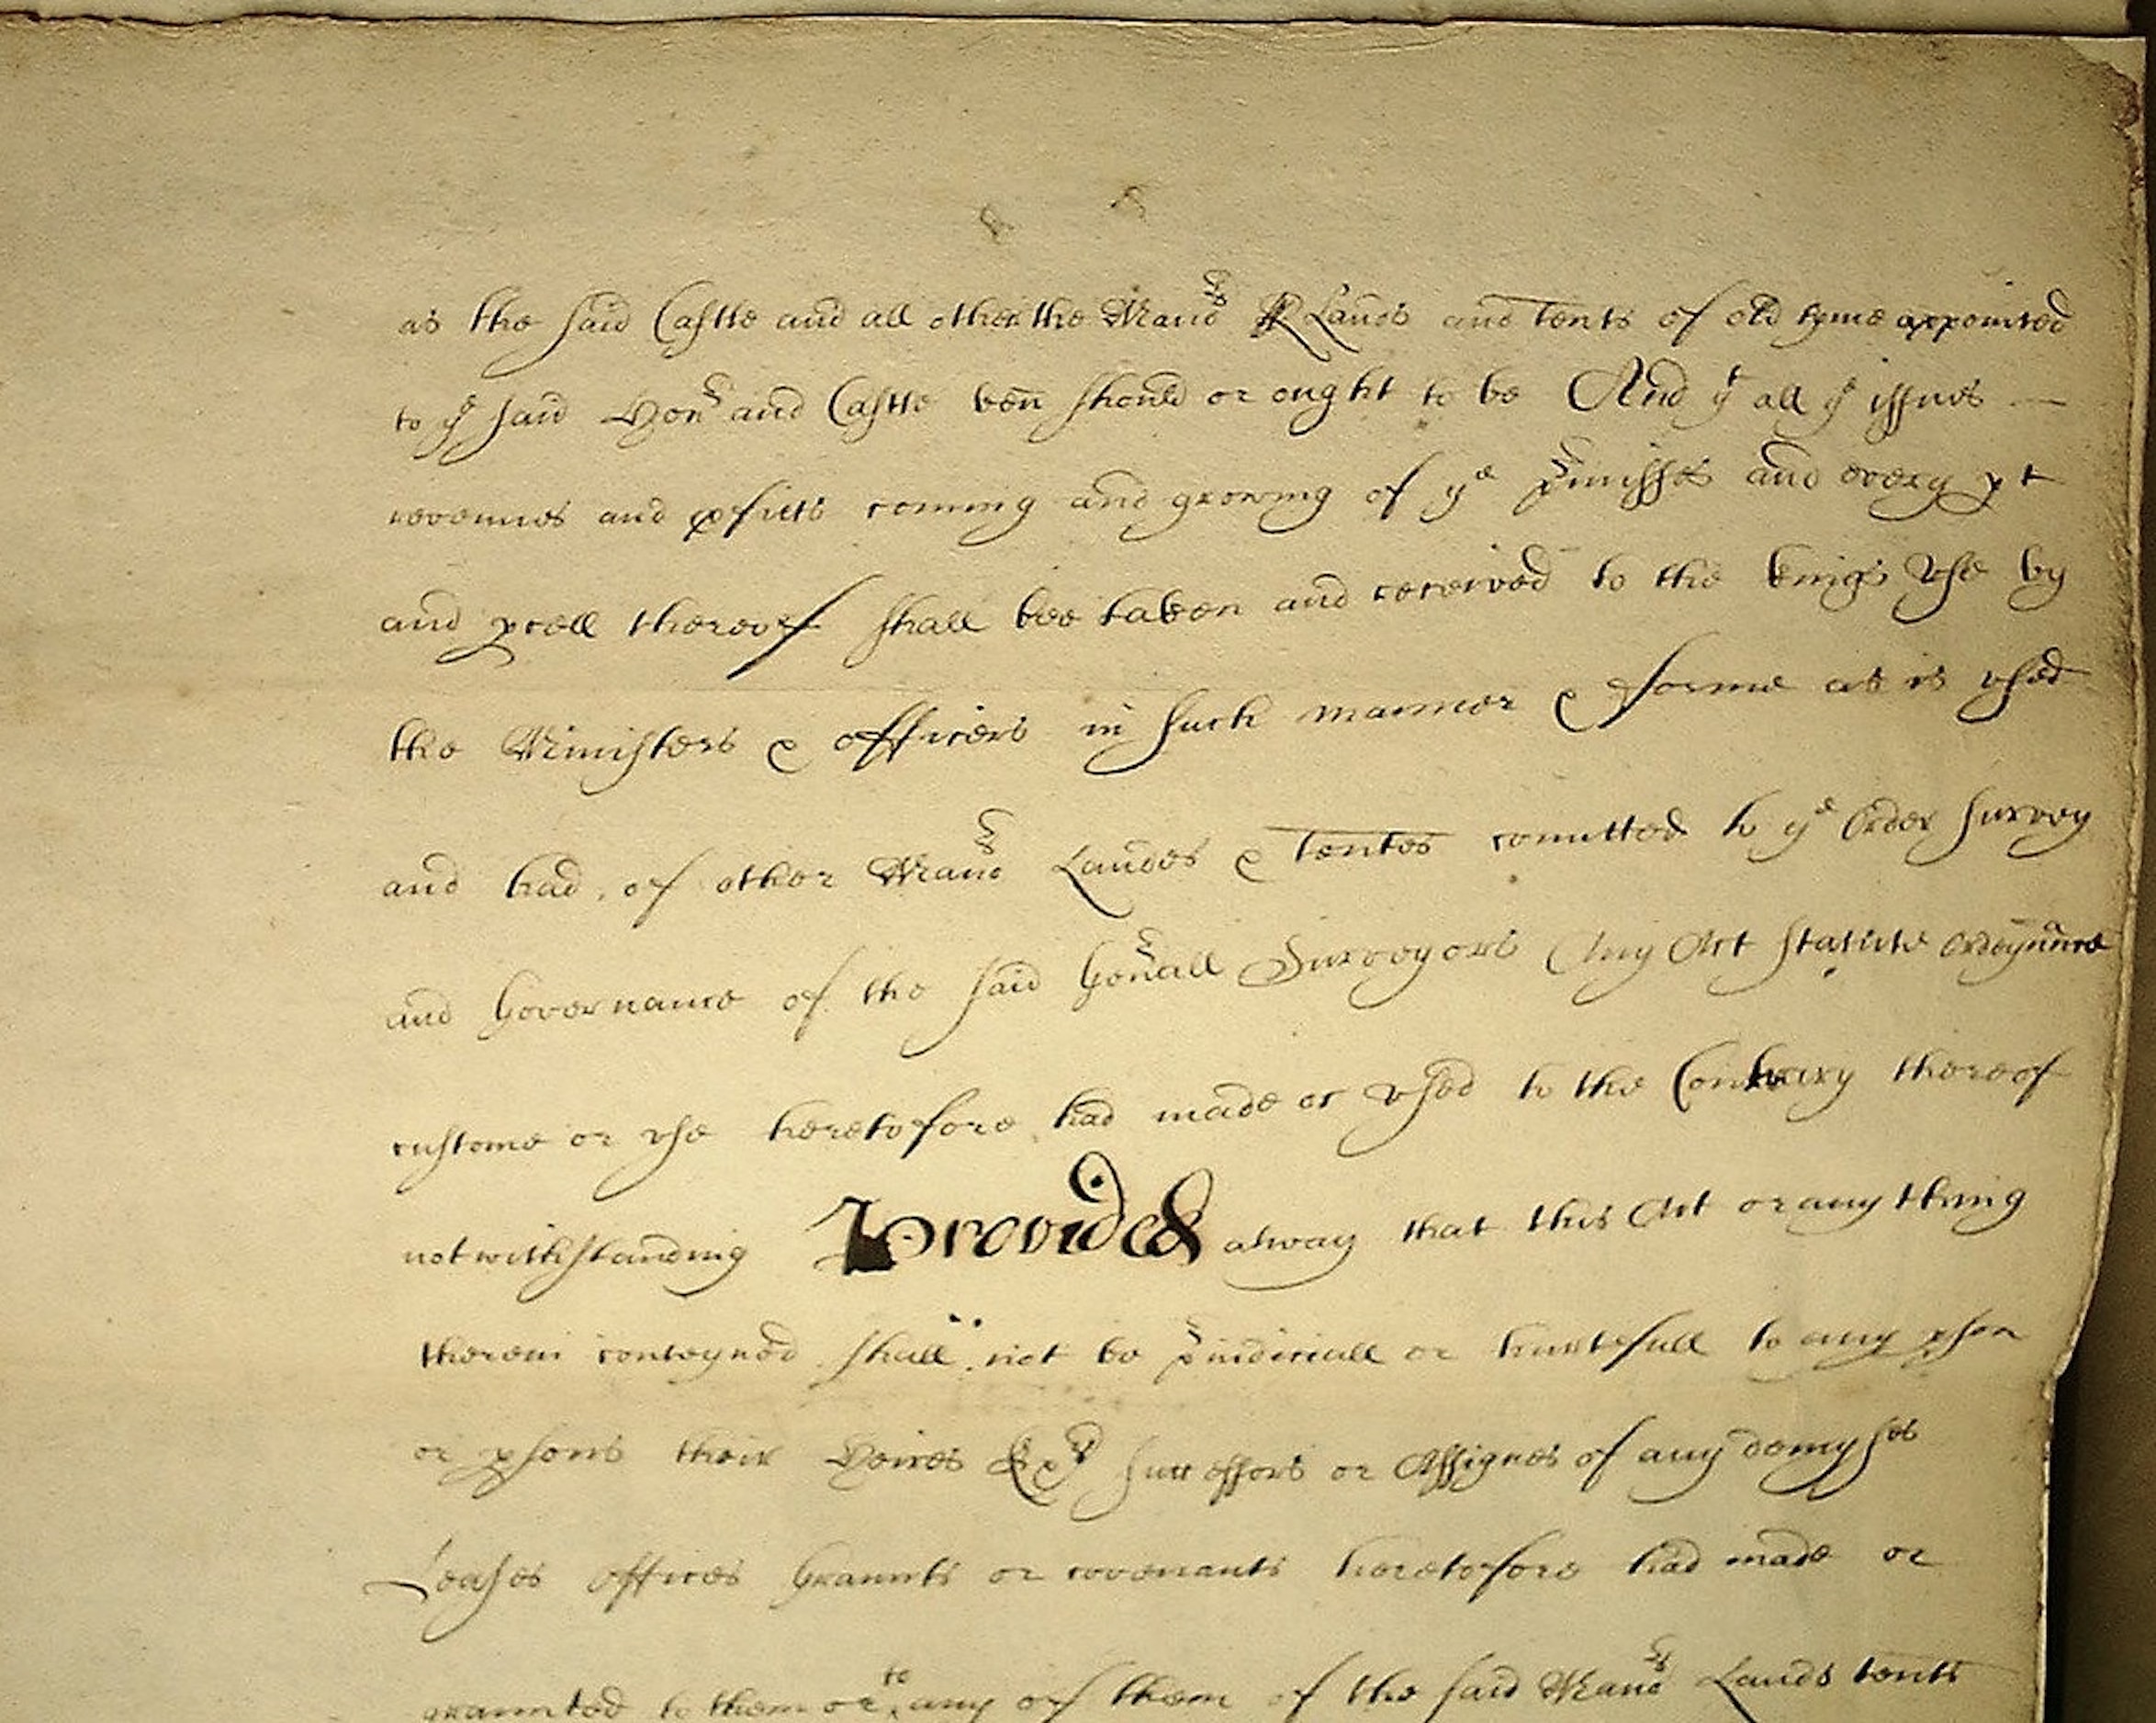 as the said Castle and all other the Man[~]s Lands and Tents of old tyme appointed
to y[e] said Hon[~] and Castle ben should or ought to be And y[t] all y[e] issues —
revenues and pfitts coming and growing of y[e] p[~]misses and every pt
and pcell thereof shall bee taken and received to the kings vse by
the Ministers & officers in such manner & forme as is vsed
and had of other Man[~]s Landes & Tentes comitted to y[e] Order survey
and Governance of the said Gen[~]all Surveyors Any Act statute Ordeynnce
custome or vse heretofore had made or vsed to the Contrary thereof
notwithstanding Provided alway that this Act or any thing
therein conteyned shall not be p[~]iudiciall or hurtefull to any pson
or psons their Heires successors or Assignes of any demyses
Leases offices Graunts or covenants heretofore had made or
graunted to them or to any of them of the said Man[~]s Lands tents